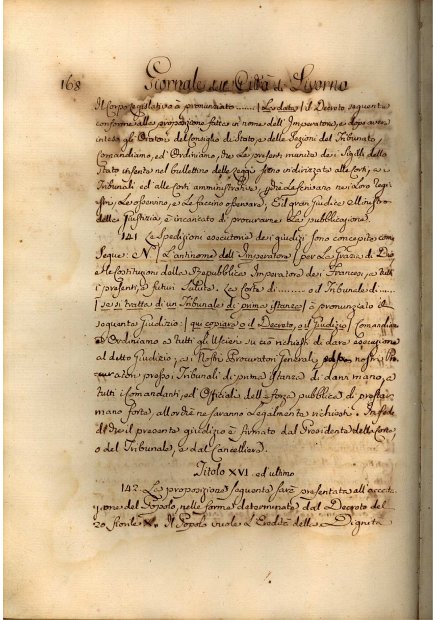 168 Giornale della Città di Livorno
Il Corpo Legislativo à pronunziato ........ | La data | il Decreto seguente
conforme alla proposizione fatta in nome dell'Imperatore, e dopo avere
inteso gli Oratori del Consiglio di Stato, e delle Sezioni del Tribunato,
Comandiamo, ed Ordiniamo, che le presenti munite dei Sigilli dello
Stato inserite nel bullettino delle Leggi siano indirizzate alle Corti, ai
Tribunali ed alle Corti amministrative, che le scrivano nei loro regi-
stri, le osservino, e le faccino osservare, E il gran Giudice Ministro
della Giustizia è incaricato di procurarne la pubblicazione.
141. Le Spedizioni esecutorie dei giudizi sono concepite come
Segue: N. | L'antinome dell'Imperatore | per La Grazia di Dio
e le Costituzioni della Repubblica Imperatore dei Francesi, a tutti
i presenti, e futuri Salute. La Corte di ......... o il Tribunale di........
| se si tratta di un Tribunale di prima istanza | à pronunziato il
seguente Giudizio: | qui copiare o il Decreto, o il Giudizio | Comandiamo
ed Ordiniamo a tutti gli Uscieri su ciò richiesti di dare esecuzione
al detto Giudizio; ai Nostri Procuratori Generali, nostri Pro-
curatori presso i Tribunali di prima istanza di darvi mano, a
tutti i Comandanti, ed Officiali della forza pubblica di prestar
mano forte, allorchè ne saranno legalmente richiesti. In fede
di che il presente giudizio è firmato dal Presidente della Corte,
o del Tribunale, e dal Cancelliere.
Titolo XVI. ed ultimo
142. La proposizione seguente sarà presentata all'accetta-
zione del Popolo, nelle forme determinate dal Decreto del
20 fiorile X. Il Popolo vuole l'Eredità della Dignità